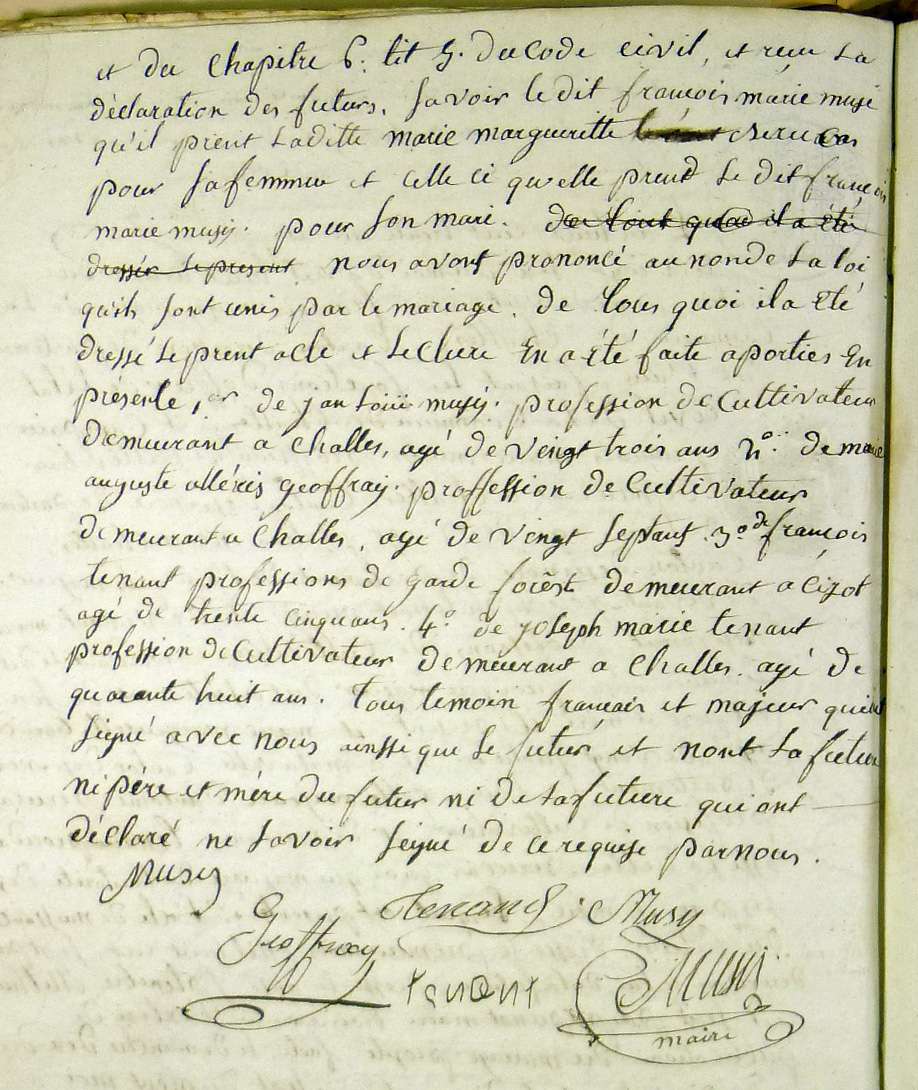 et du chapitre 6. tit 5. du code civil, et reçu la
déclaration des futurs. savoir ledit francois marie musi
qu'il prent laditte marie marguerette
pour sa femme et celle ci qu'elle prend le dit francois
marie musy. pour son mari. de tout quoi il a été
dressér le present nous avons prononcé au non de la loi
qu'ils sont unis par le mariage. de tous quoi il a été
dressé le prent acte et lecture en a été faite aporties en
présente, 1er de jan Loüi musy. profession de Cultivateur
demeurant a challes, agé de vengt trois ans 2o. de marie
auguste alléxis geoffray. proffession de Cultivateur
demeurant a challes, agé de vengt septans. 3o de francois
tenant professions de garde forèst demeurant a cizot
agé de trente cinquans. 4o de joseph marie tenant
profession de Cultivateur demeurant a challes. agé de
quarante huit ans. tous temoin francais et majeur qui ont
signé avec nous ainssi que le futur et nont la future
ni père et mère du futur ni de la future qui ont
déclaré ne savoir seigné de ce requise par nous.
Musy
Tenand. Musy
Geoffray
tenant Musy
maire